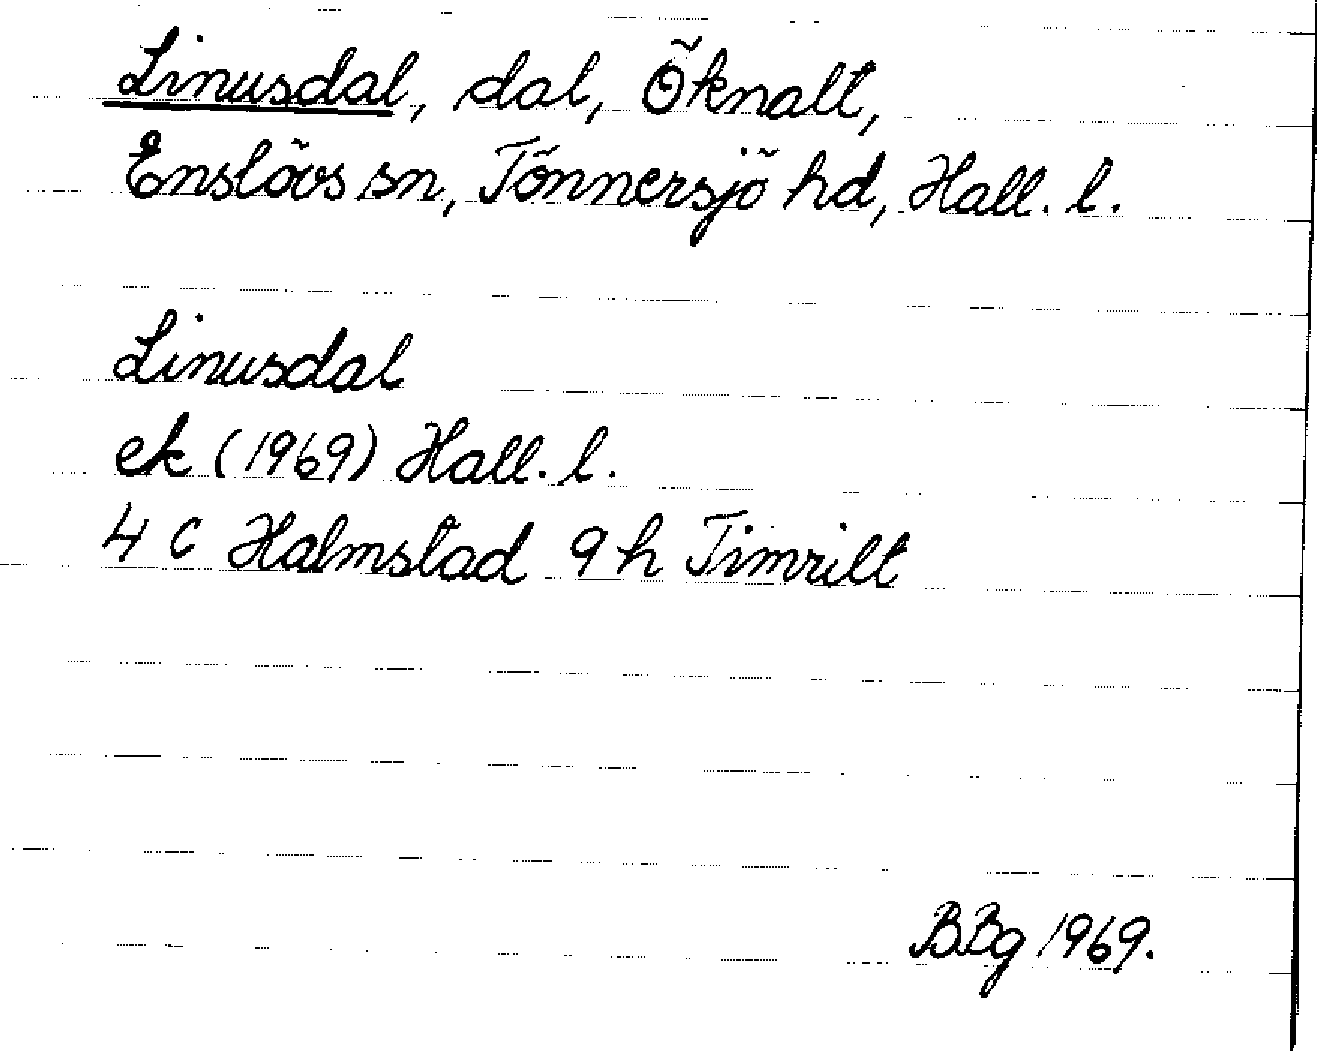 Linusdal, dal, Öknalt,
Enslövs sn, Tönnersjö hd, Hall. l.
Linusdal
ek (1969) Hall. l.
4 C Halmstad 9 h Timrilt
BBg 1969.